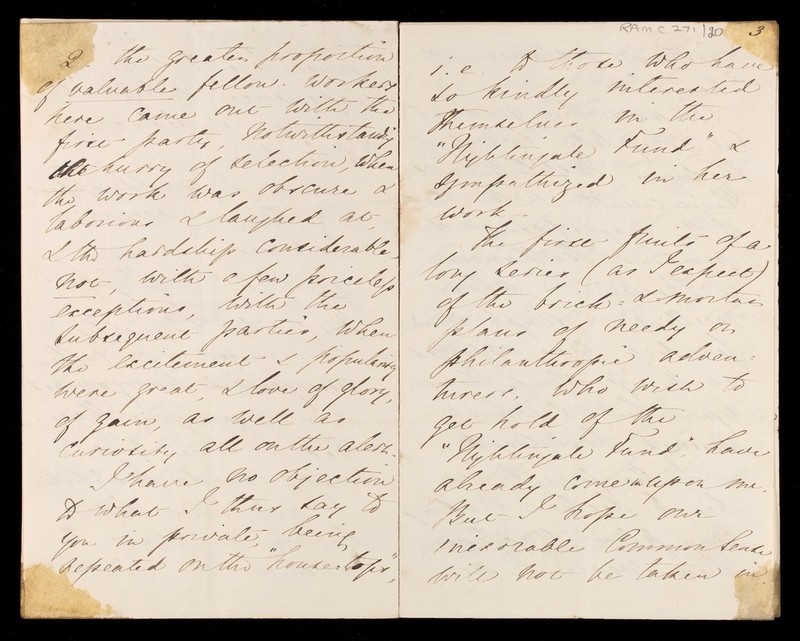 2 the greater proportion
of valuable fellow-workers
here came out with the
first party, notwithstanding
the hurry of selection, when
the work was obscure &
laborious & laughed at,
& the hardship considerable,
not, with a few priceless
exceptions, with the
subsequent parties, when
the excitement & popularity
were great, & love of glory,
of gain, as well as
curiosity all on the alert.
I have no objection
to what I thus say to
you in private, being
repeated on the "house-tops",
RAMC 271/20 3
i.e. to those who have
so kindly interested
themselves in the
"Nightingale Fund" &
sympathized in her
work.
The first fruits of a
long series (as I expect)
of the brick-&-mortar
plans of needy or
philanthropic adven=
turers, who wish to
get hold of the
"Nightingale Fund", have
already come in upon me.
But I hope our
inexorable Common Sense
will not be taken in.